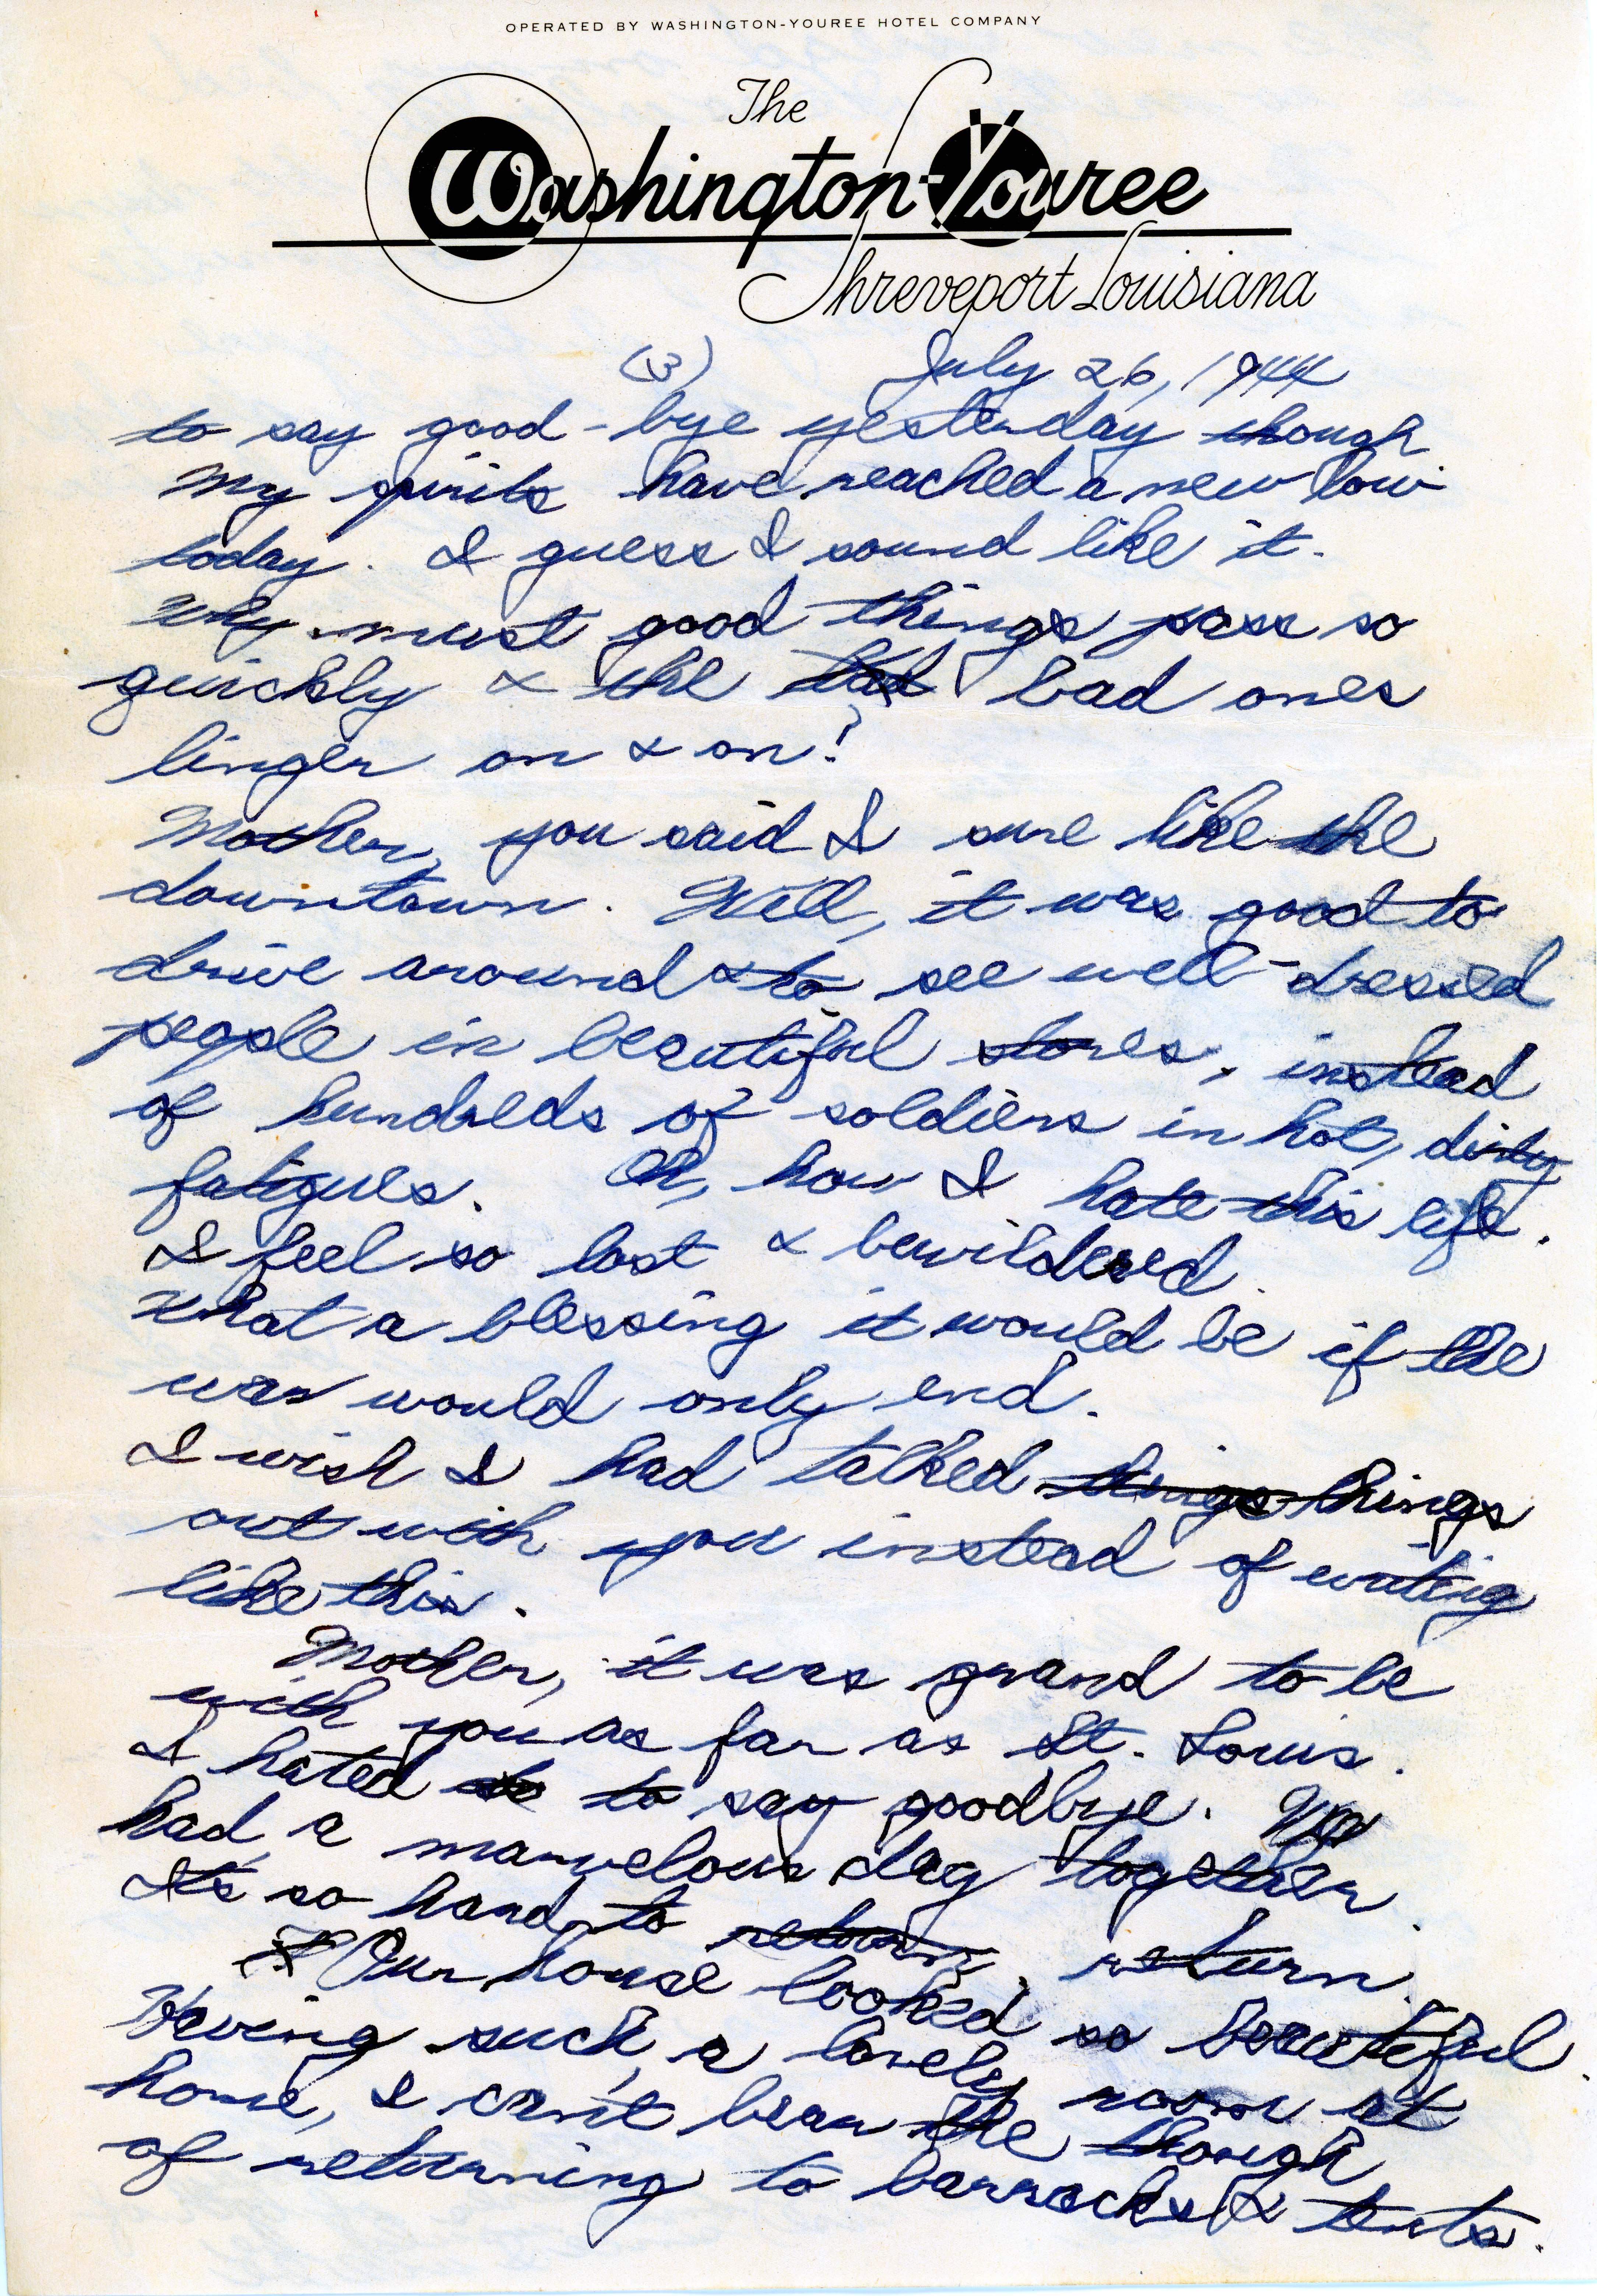 OPERATED BY WASHINGTON-YOUREE HOTEL COMPANY
The
Washington-Youree
Shreveport Louisiana
(3) July 26, 1944
to say good-bye yesterday though
my spirits have reached a new low
today. I guess I sound like it.
Why must good things pass so
quickly & the bad ones
linger on & on?
Mother, you said I sure like the
downtown. Well, it was good to
drive around & to see well-dressed
people in beautiful stores, instead
of hundreds of soldiers in hot, dirty
fatigues. Oh, how I hate this life.
I feel so lost & bewildered.
What a blessing it would be if the
war would only end.
I wish I had talked things things
out with you instead of writing
like this.
Mother, it was grand to be
with you as far as St. Louis.
I hated to say goodbye. We
had a marvelous day together.
It's so hard to return. return.
Our house looked so beautiful.
Having such a lovely room at
home, I can't bear the though
of returning to barracks & tents.